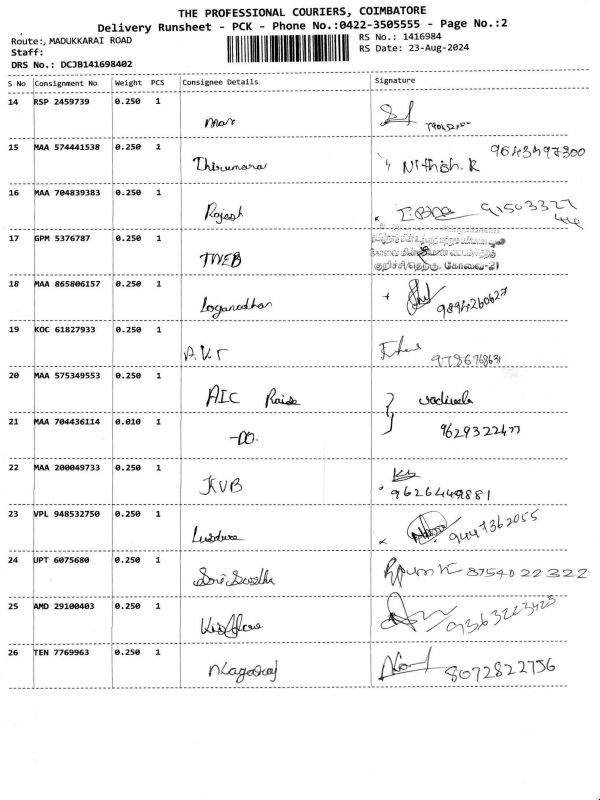 THE PROFESSIONAL COURIERS, COIMBATORE
Delivery Runsheet - PCK - Phone No.:0422-3505555 - Page No.:2
Route:, MADUKKARAI ROAD
RS No.: 1416984
Staff:
RS Date: 23-Aug-2024
DRS No.: DCJB141698402
S No Consignment No Weight PCS Consignee Details Signature
14 RSP 2459739 0.250 1
15 MAA 574441538 0.250 1 9643497300
Thirumara Nithish.R
16 MAA 704839383 0.250 1
Rajesh 91503327
17 GPM 5376787 0.250 1
TNEB
குறிச்சி/தெற்கு, கோவை-21
18 MAA 865806157 0.250 1
Loganadhan 9894260627
19 KOC 61827933 0.250 1
A.V.T 9786768631
20 MAA 575349553 0.250 1
AIC Raise Vadivela
21 MAA 704436114 0.010 1
-DO. 9629322477
22 MAA 200049733 0.250 1
KVB 9626449881
23 VPL 948532750 0.250 1
9447362055
24 UPT 6075680 0.250 1
8754022322
25 AMD 29100403 0.250 1
9363223423
26 TEN 7769963 0.250 1
Nagaraj 8072822756